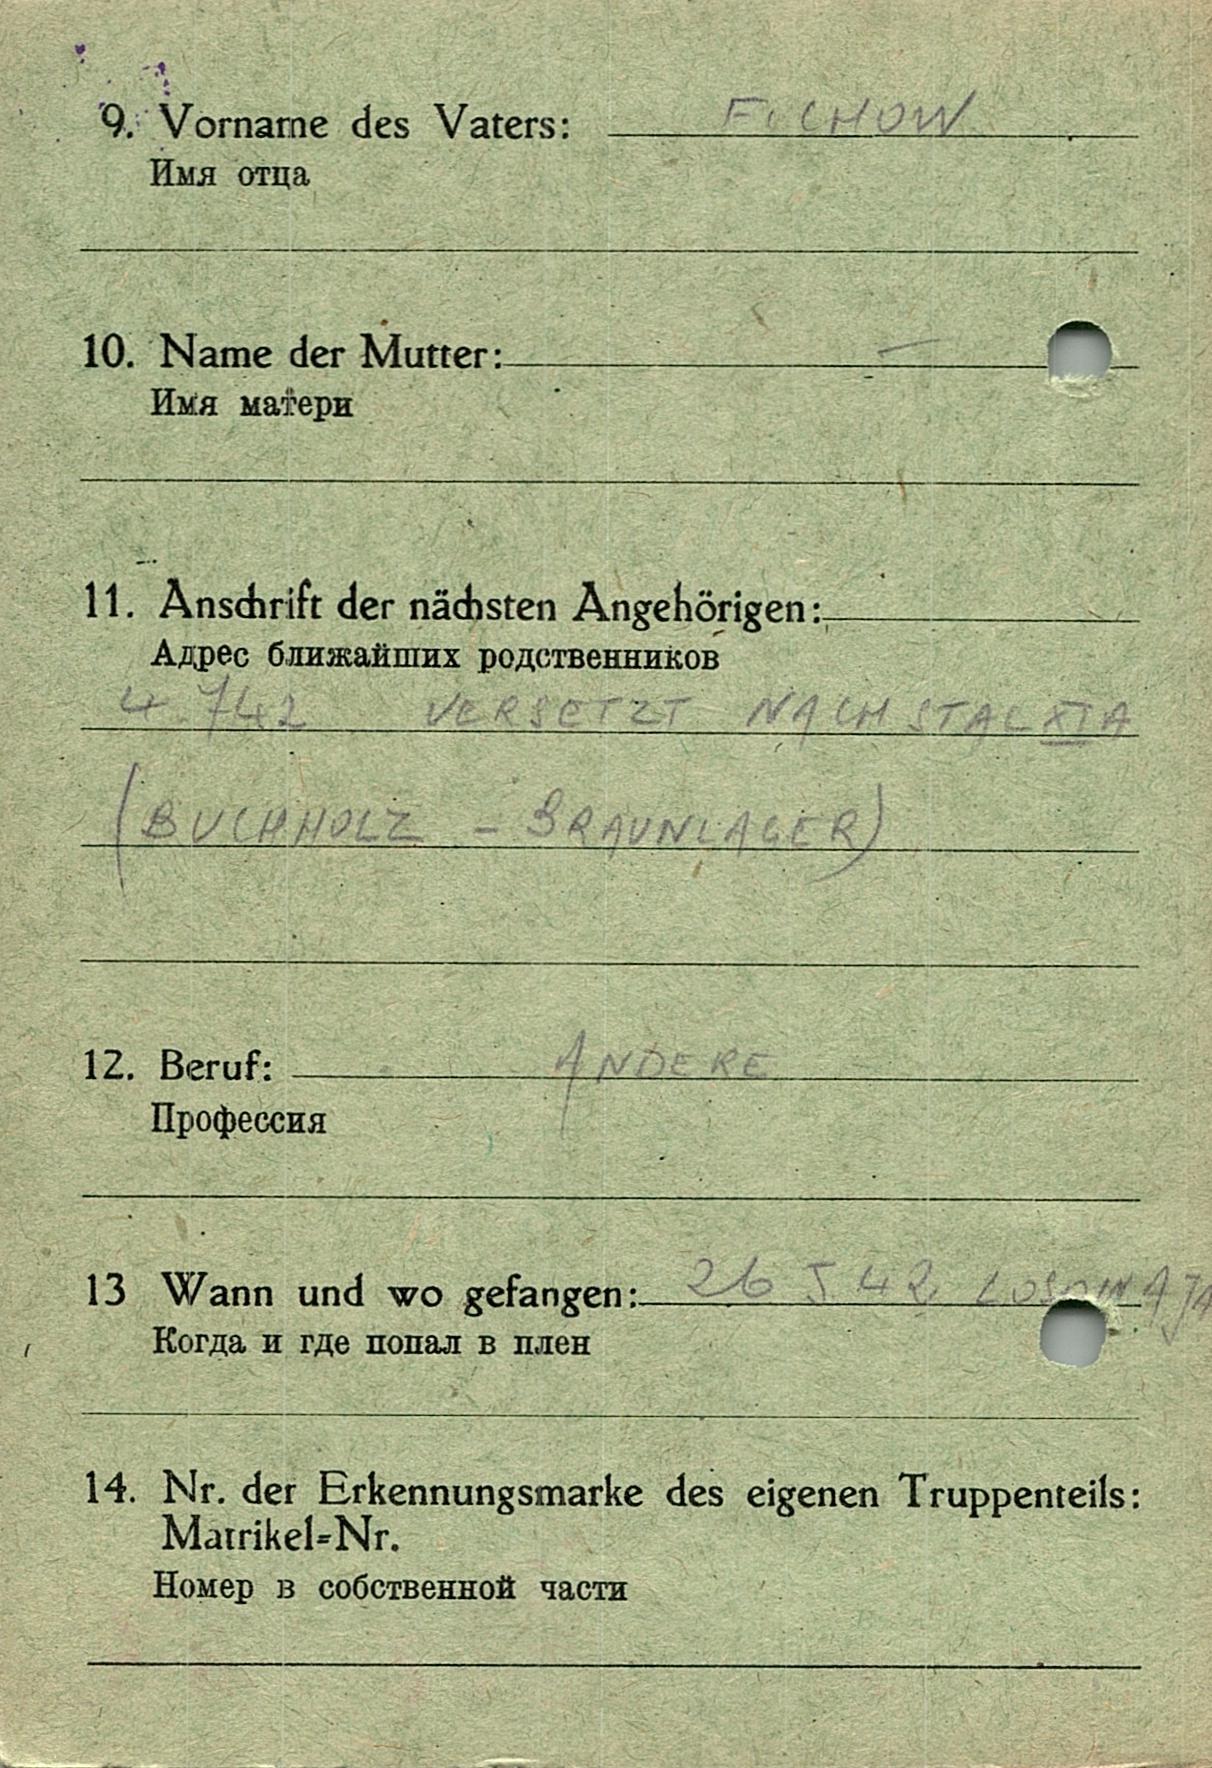 9. Vorname des Vaters: FICHOW
Имя отца
10. Name der Mutter: —
Имя матери
11. Anschrift der nächsten Angehörigen:
Адрес ближайших родственников
4.742 VERSETZT NACH STAL XI A
(BUCHHOLZ – BRAUNLAGER)
12. Beruf: ANDERE
Профессия
13 Wann und wo gefangen: 26 5 42
Когда и где попал в плен
14. Nr. der Erkennungsmarke des eigenen Truppenteils:
Matrikel=Nr.
Номер в собственной части